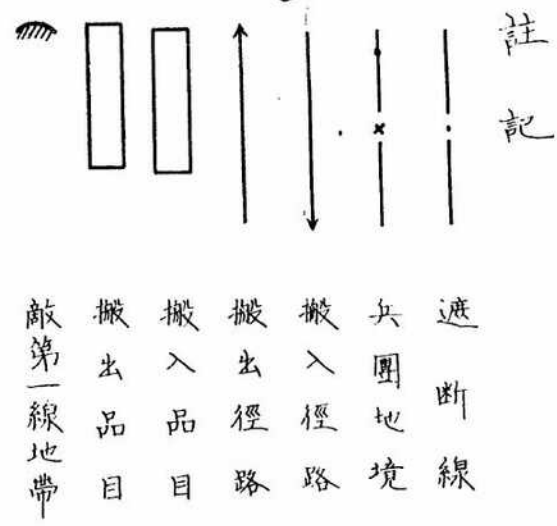 註記
遮断線
兵團地境
搬入徑路
搬出徑路
搬入品目
搬出品目
敵第一線地帶